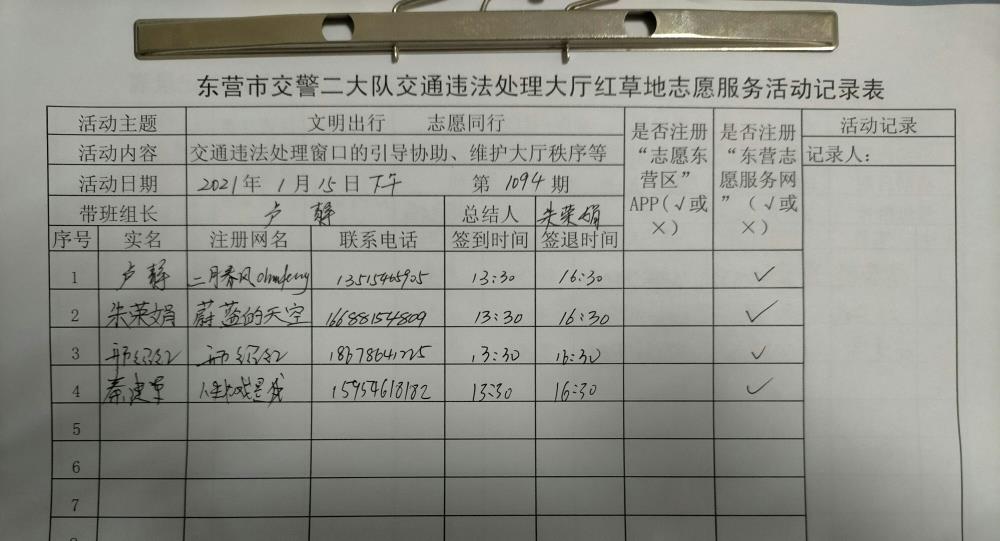 东营市交警二大队交通违法处理大厅红草地志愿服务活动记录表
活动主题 文明出行 志愿同行 是否注册“志愿东营区”APP(√或×) 是否注册“东营志愿服务网”(√或×) 活动记录
活动内容 交通违法处理窗口的引导协助、维护大厅秩序等 记录人：
活动日期 2021年1月15日下午 第1094期
带班组长 卢静 总结人 朱荣娟
序号 实名 注册网名 联系电话 签到时间 签退时间
1 卢静 二月春风 13515465905 13:30 16:30 ✓
2 朱荣娟 蔚蓝的天空 16688154809 13:30 16:30 ✓
3 18678641225 13:30 16:30 ✓
4 秦建军 15954618182 13:30 16:30 ✓
5
6
7